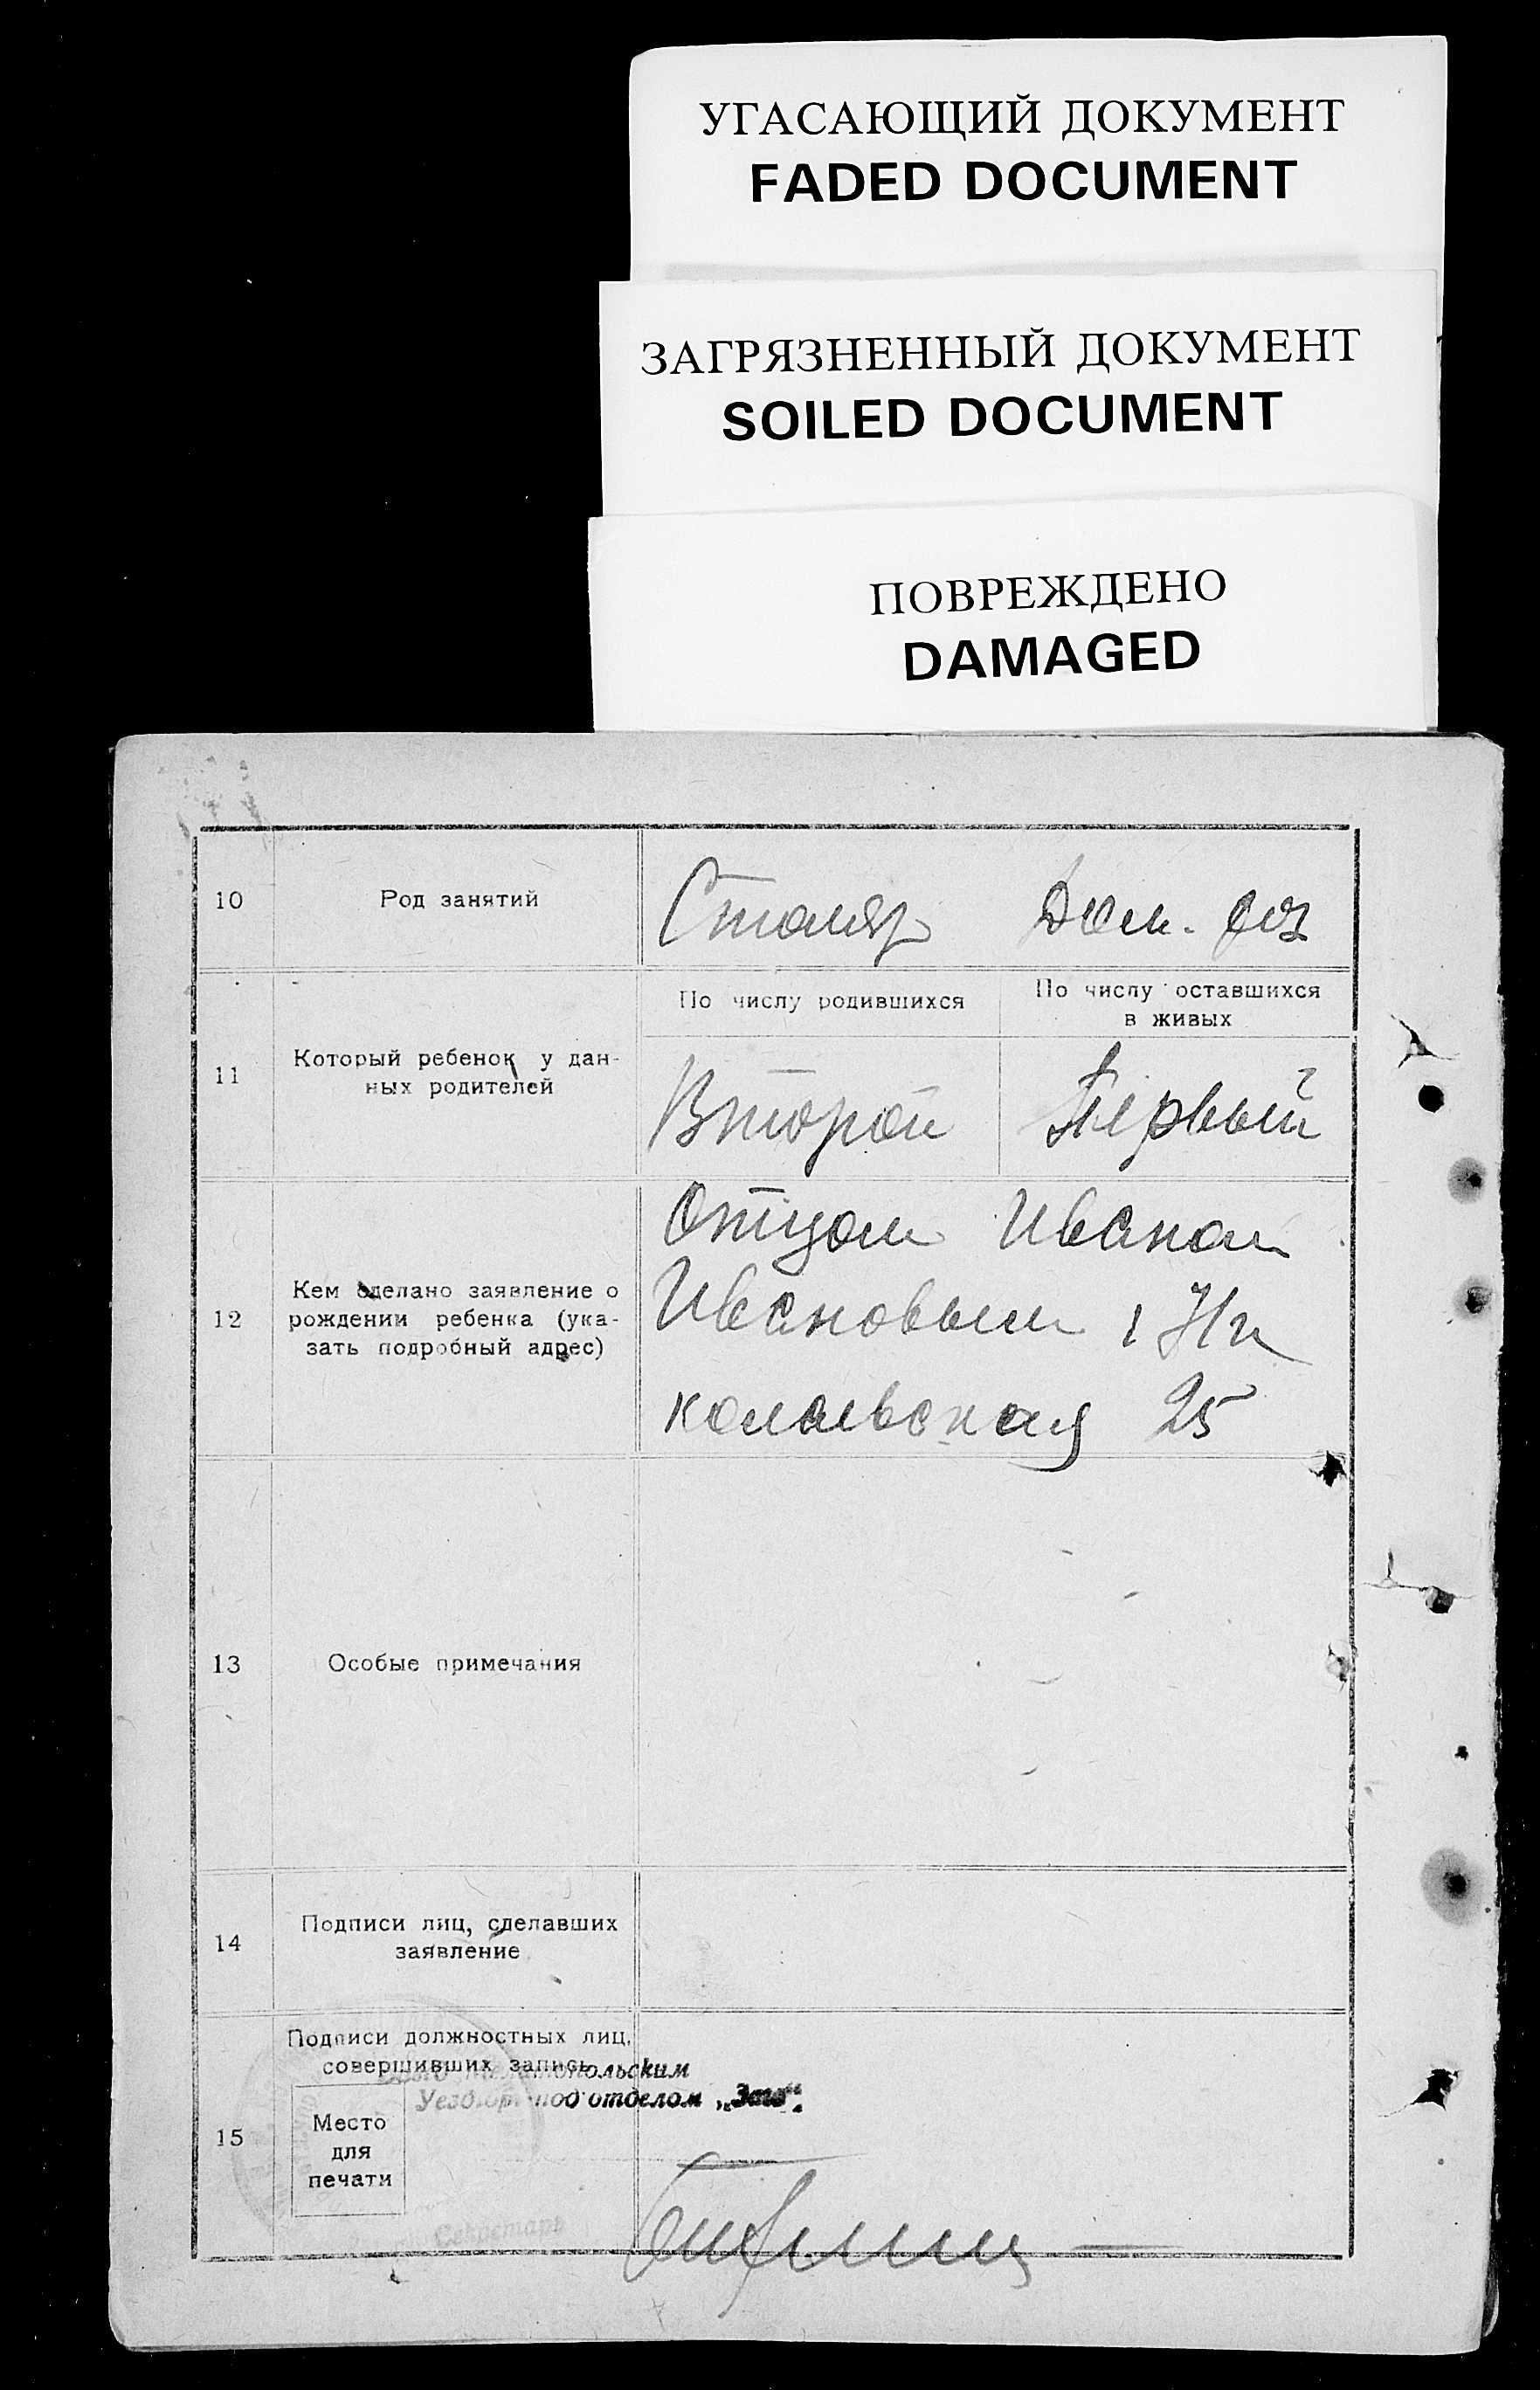 УГАСАЮЩИЙ ДОКУМЕНТ
FADED DOCUMENT
ЗАГРЯЗНЕННЫЙ ДОКУМЕНТ
SOILED DOCUMENT
ПОВРЕЖДЕНО
DAMAGED
10
Род занятий
Столяр
Дом. хоз
11
Который ребенок у дан-
ных родителей
По числу родившихся
По числу оставшихся
в живых
Второй
Первый
12
Кем сделано заявление о
рождении ребенка (ука-
зать подробный адрес)
Отцом Иваном
Ивановым 1 Ни
колаевская 25
13
Особые примечания
14
Подписи лиц, сделавших
заявление
15
Подписи должностных лиц,
совершивших запись
Место
для
печати
Уездгор. подотделом „Загс“.
Секретарь